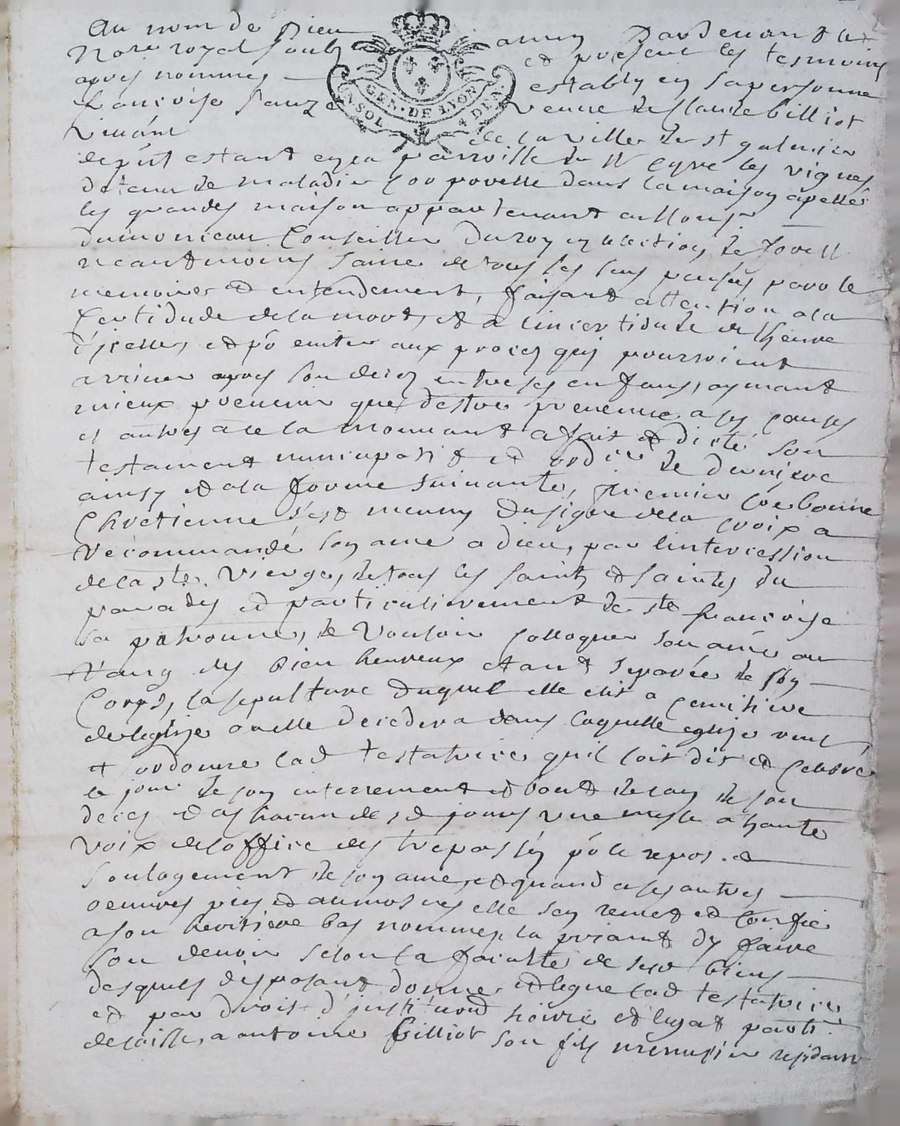 Au nom de Dieu amen Pardevant le
Notre royal soubz et present les tesmoins
apres nommes establÿ en sa personne
francoise vevue de Claude billiot
GEN. DE LYON
UN SOL 4 DEN.
vivant de la ville de st galmier
de pnt estant en la parroisse de st Cyre les vignes
detenue de maladie corporelle dans la maison apellée
les grandes maison appartenant a
Conseiller du roy en election de forest
neantmoins saine de tous ses sens pensés parole
memoire et entendement, faisant attention a la
Certidude de la mort et a lincertidude de lheure
dicelle, et po eviter aux proces qui pourroient
arriver apres son deces entre ses enfans, aymant
mieux prevenir que destre prevenue a ses causes
et autres a ce la mouvant a fait et dicté son
testament nuncupatif et ordre de derniere
ainsy et a la forme suivante, premier Coe bonne
Chretienne sest munny du signe de la croix a
recommandé son ame a dieu, par lintercession
de la ste. Vierge, de tous les saints et saintes du
paradis et particulierement de ste francoise
sa patronne, de Vouloir Colloquer son ame au
rang des bien heureux etant separée de son
Corps, la sepulture duquel elle elit a Cemitiere
de leglise ou elle decedera dans laquelle eglise veut
et ordonne lad testatrice quil soit dit et Celebré
le jour de son enterrement et bout de lan de son
deces et a chacun des d jours une messe a haute
voix de loffice des trepassés po le repos et
soulagement de son ame, et quand a ses autres
oeuvres pies et aumosnes elle sen remet et Confie
a son heritiere bas nommée, la priant dy faire
son devoir selon la faculté de ses biens
desquels disposant donne et legue lad testatrice
et par droit d'institution hoirie et legat parti
delaisse a antoine billiot son fils menusier residant